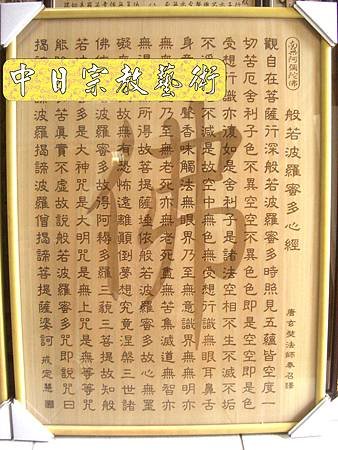 中日宗教藝術
南無阿彌陀佛
般若波羅蜜多心經
唐玄奘法師奉召譯
觀自在菩薩行深般若波羅蜜多時照見五蘊皆空度一
切苦厄舍利子色不異空空不異色色即是空空即是色
受想行識亦復如是舍利子是諸法空相不生不滅不垢
不淨不減是故空中無色無受想行識無眼耳鼻舌
聲香味觸法無眼界乃至無意識界無無明亦
無乃至無老死亦無老死盡無苦集滅道無智亦
無所得故菩提薩埵依般若波羅蜜多故心無罣
礙故無有恐怖遠離顛倒夢想究竟涅槃三世諸
佛多故得阿耨多羅三藐三菩提故知般
若多是大神咒是大明咒是無上咒是無等等咒
能除苦真實不虛故說般若波羅蜜多咒即說咒曰
揭諦波羅揭諦波羅僧揭諦菩提薩婆訶 戒定慧
佛